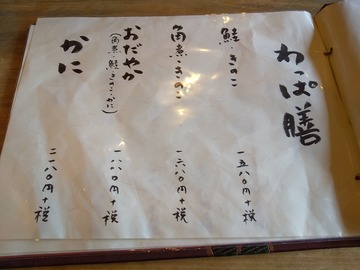 わっぱ膳
鮭・きのこ
一五八〇円+税
角煮・きのこ
一六八〇円+税
おだやか
(角煮・鮭・きのこ・かに)
一八八〇円+税
かに
二一八〇円+税